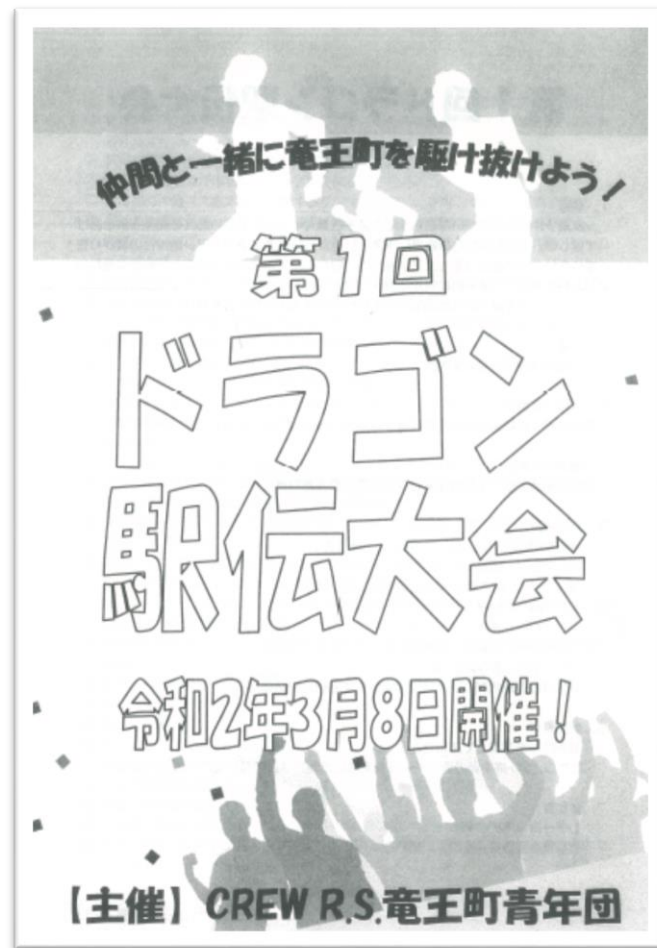 仲間と一緒に竜王町を駆け抜けよう！
第1回
ドラゴン
駅伝大会
令和2年3月8日開催！
【主催】CREW R.S.竜王町青年団